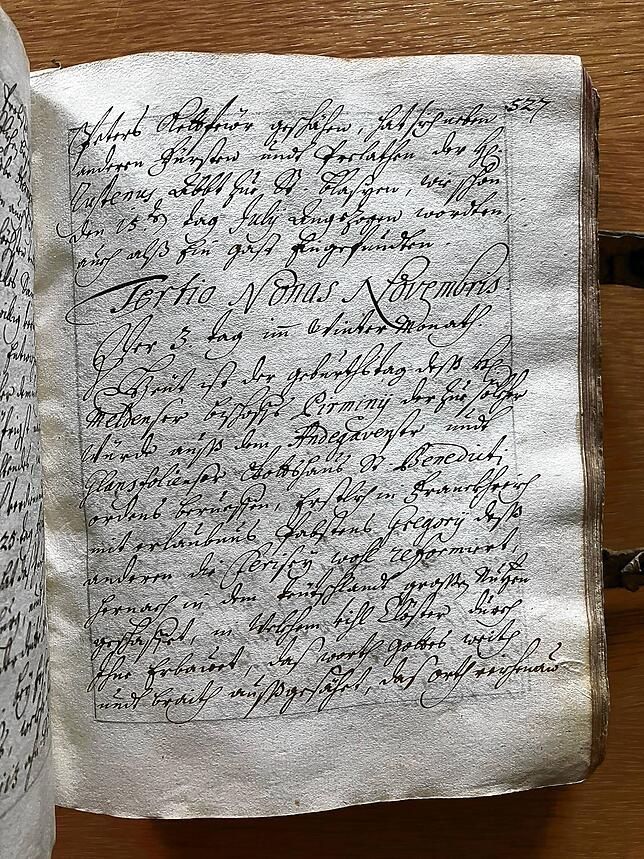 527
Peters Kettfeiir geschehen, hat sich neben
anderen Fürsten undt Prelathen der H:
Justenus Abbt zue St. Blasyen, wie schon
den 15. tag July angezogen wordten,
auch alß Ein gast Eingefundten.
Tertio Nonas Novembris.
Der 3 tag im Winter Monath.
Heut ist der geburthstag deß H:
Meldenser bischoffs Pirminy der zur solcher
würde auß dem Andegavenser undt
Glansfolienser Gottshaus St. Benedicti
ordens beruoffen, Erstlich in Franckhreich
mit erlaubnus Pabstens Gregory deß
anderen die Clerisey wohl reformiert,
hernach in dem Teütschlandt großen Nutzen
geschaffet, in welchem vihl Clöster durch
Ihne Erbauet, das worth Gottes weith
undt braith außgesähet, das orth reichenaw